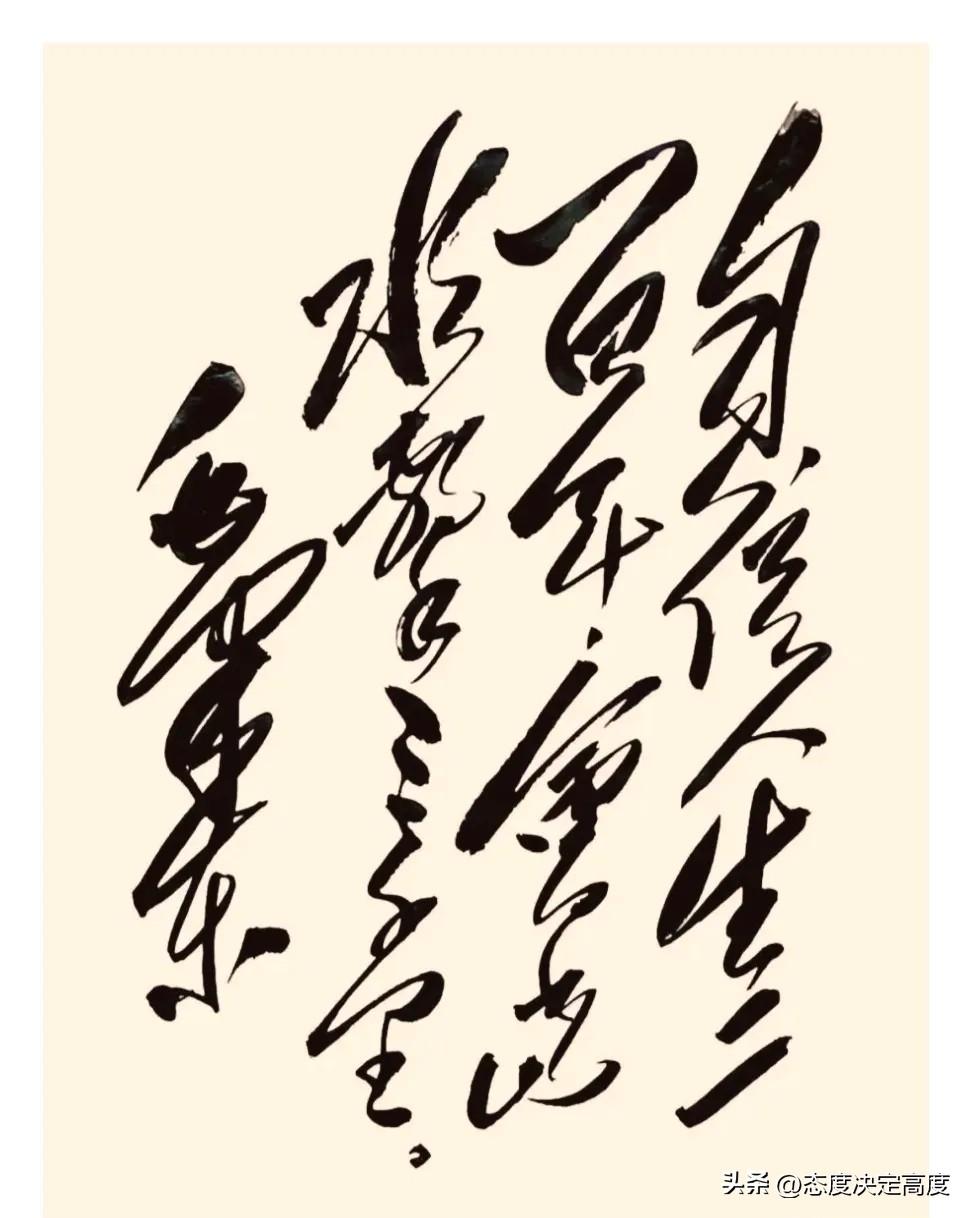 自信人生二
百年，會當
水擊三千里。
毛澤東
头条 @态度决定高度